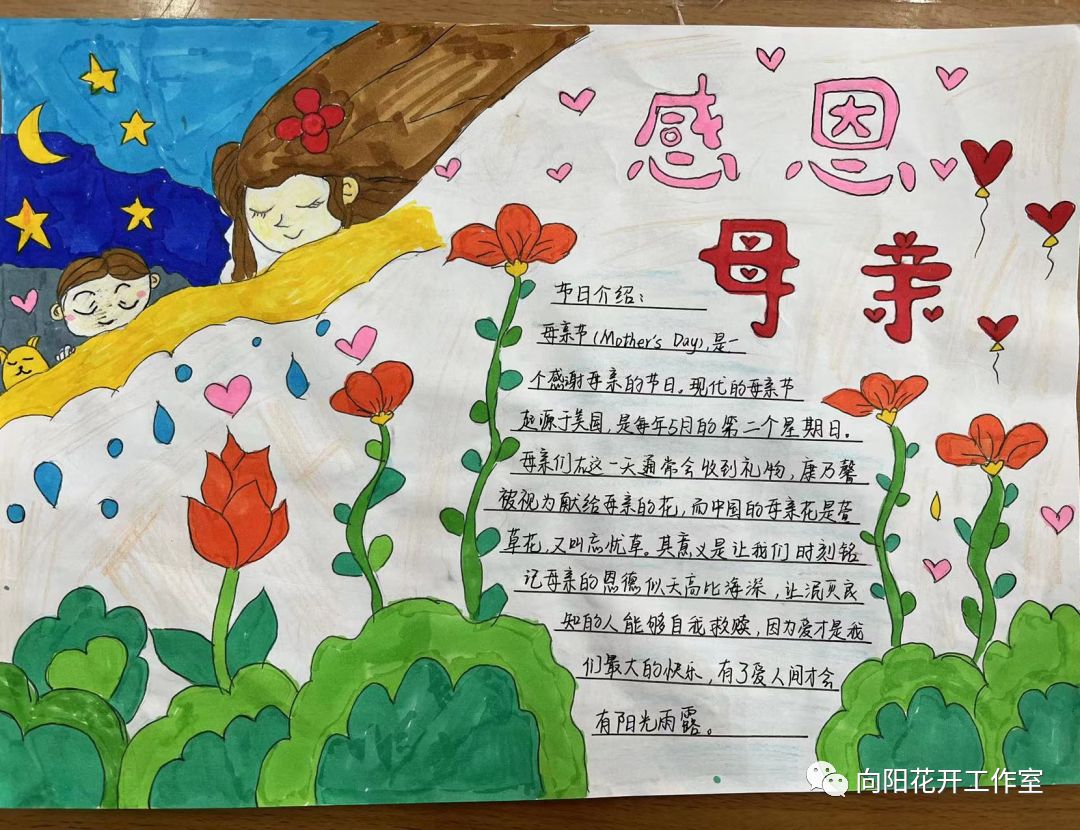 感恩
母亲
节日介绍：
母亲节(Mother's Day),是一
个感谢母亲的节日。现代的母亲节
起源于美国,是每年5月的第二个星期日。
母亲们在这一天通常会收到礼物,康乃馨
被视为献给母亲的花,而中国的母亲花是萱
草花,又叫忘忧草。其意义是让我们时刻铭
记母亲的恩德似天高比海深,让泯灭良
知的人能够自我救赎,因为爱才是我
们最大的快乐,有了爱人间才会
有阳光雨露。
向阳花开工作室